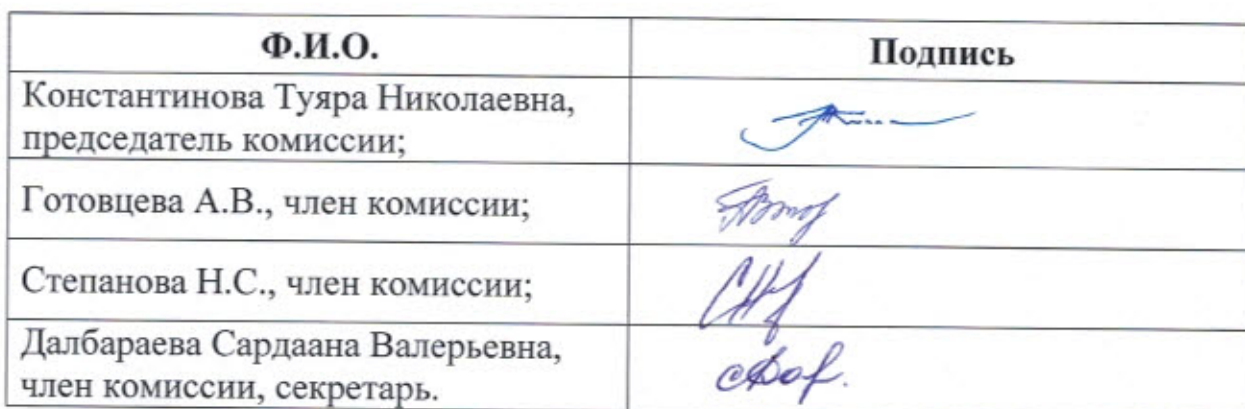 Ф.И.О.
Подпись
Константинова Туяра Николаевна,
председатель комиссии;
Готовцева А.В., член комиссии;
Степанова Н.С., член комиссии;
Далбараева Сардаана Валерьевна,
член комиссии, секретарь.